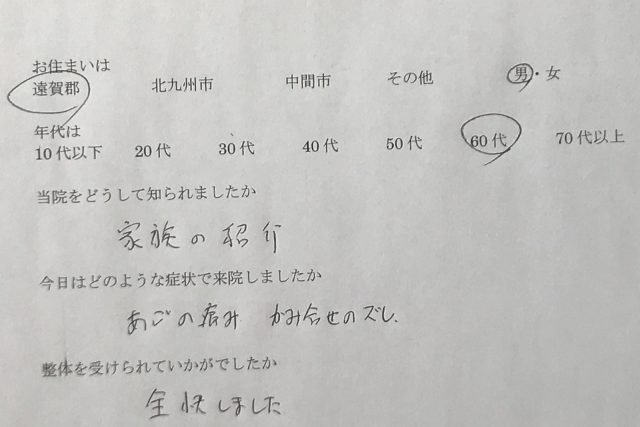 お住まいは
遠賀郡 北九州市 中間市 その他 男・女
年代は
10代以下 20代 30代 40代 50代 60代 70代以上
当院をどうして知られましたか
家族の紹介
今日はどのような症状で来院しましたか
あごの痛み かみ合せのズレ.
整体を受けられていかがでしたか
全快しました